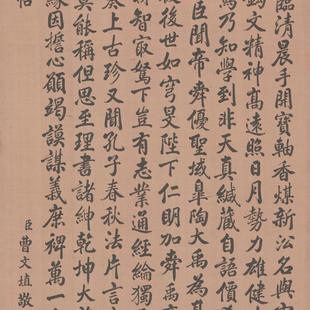 臨清晨手開寶軸香煤新沿名與
鈎文精神高遠照日月勢力雄健
篤乃知學到非天真緘藏自語價
臣聞帝舜優聖域皐陶大禹為其
後世如穹旻陛下仁明加舜禹
新智寂駑下豈有志業通經綸獨
奏上古珍又聞孔子春秋法片言
莫能稱但思至理書諸紳乾坤大
緣因擔心願竭謨謀義庶裨萬一
臣曹文埴敬